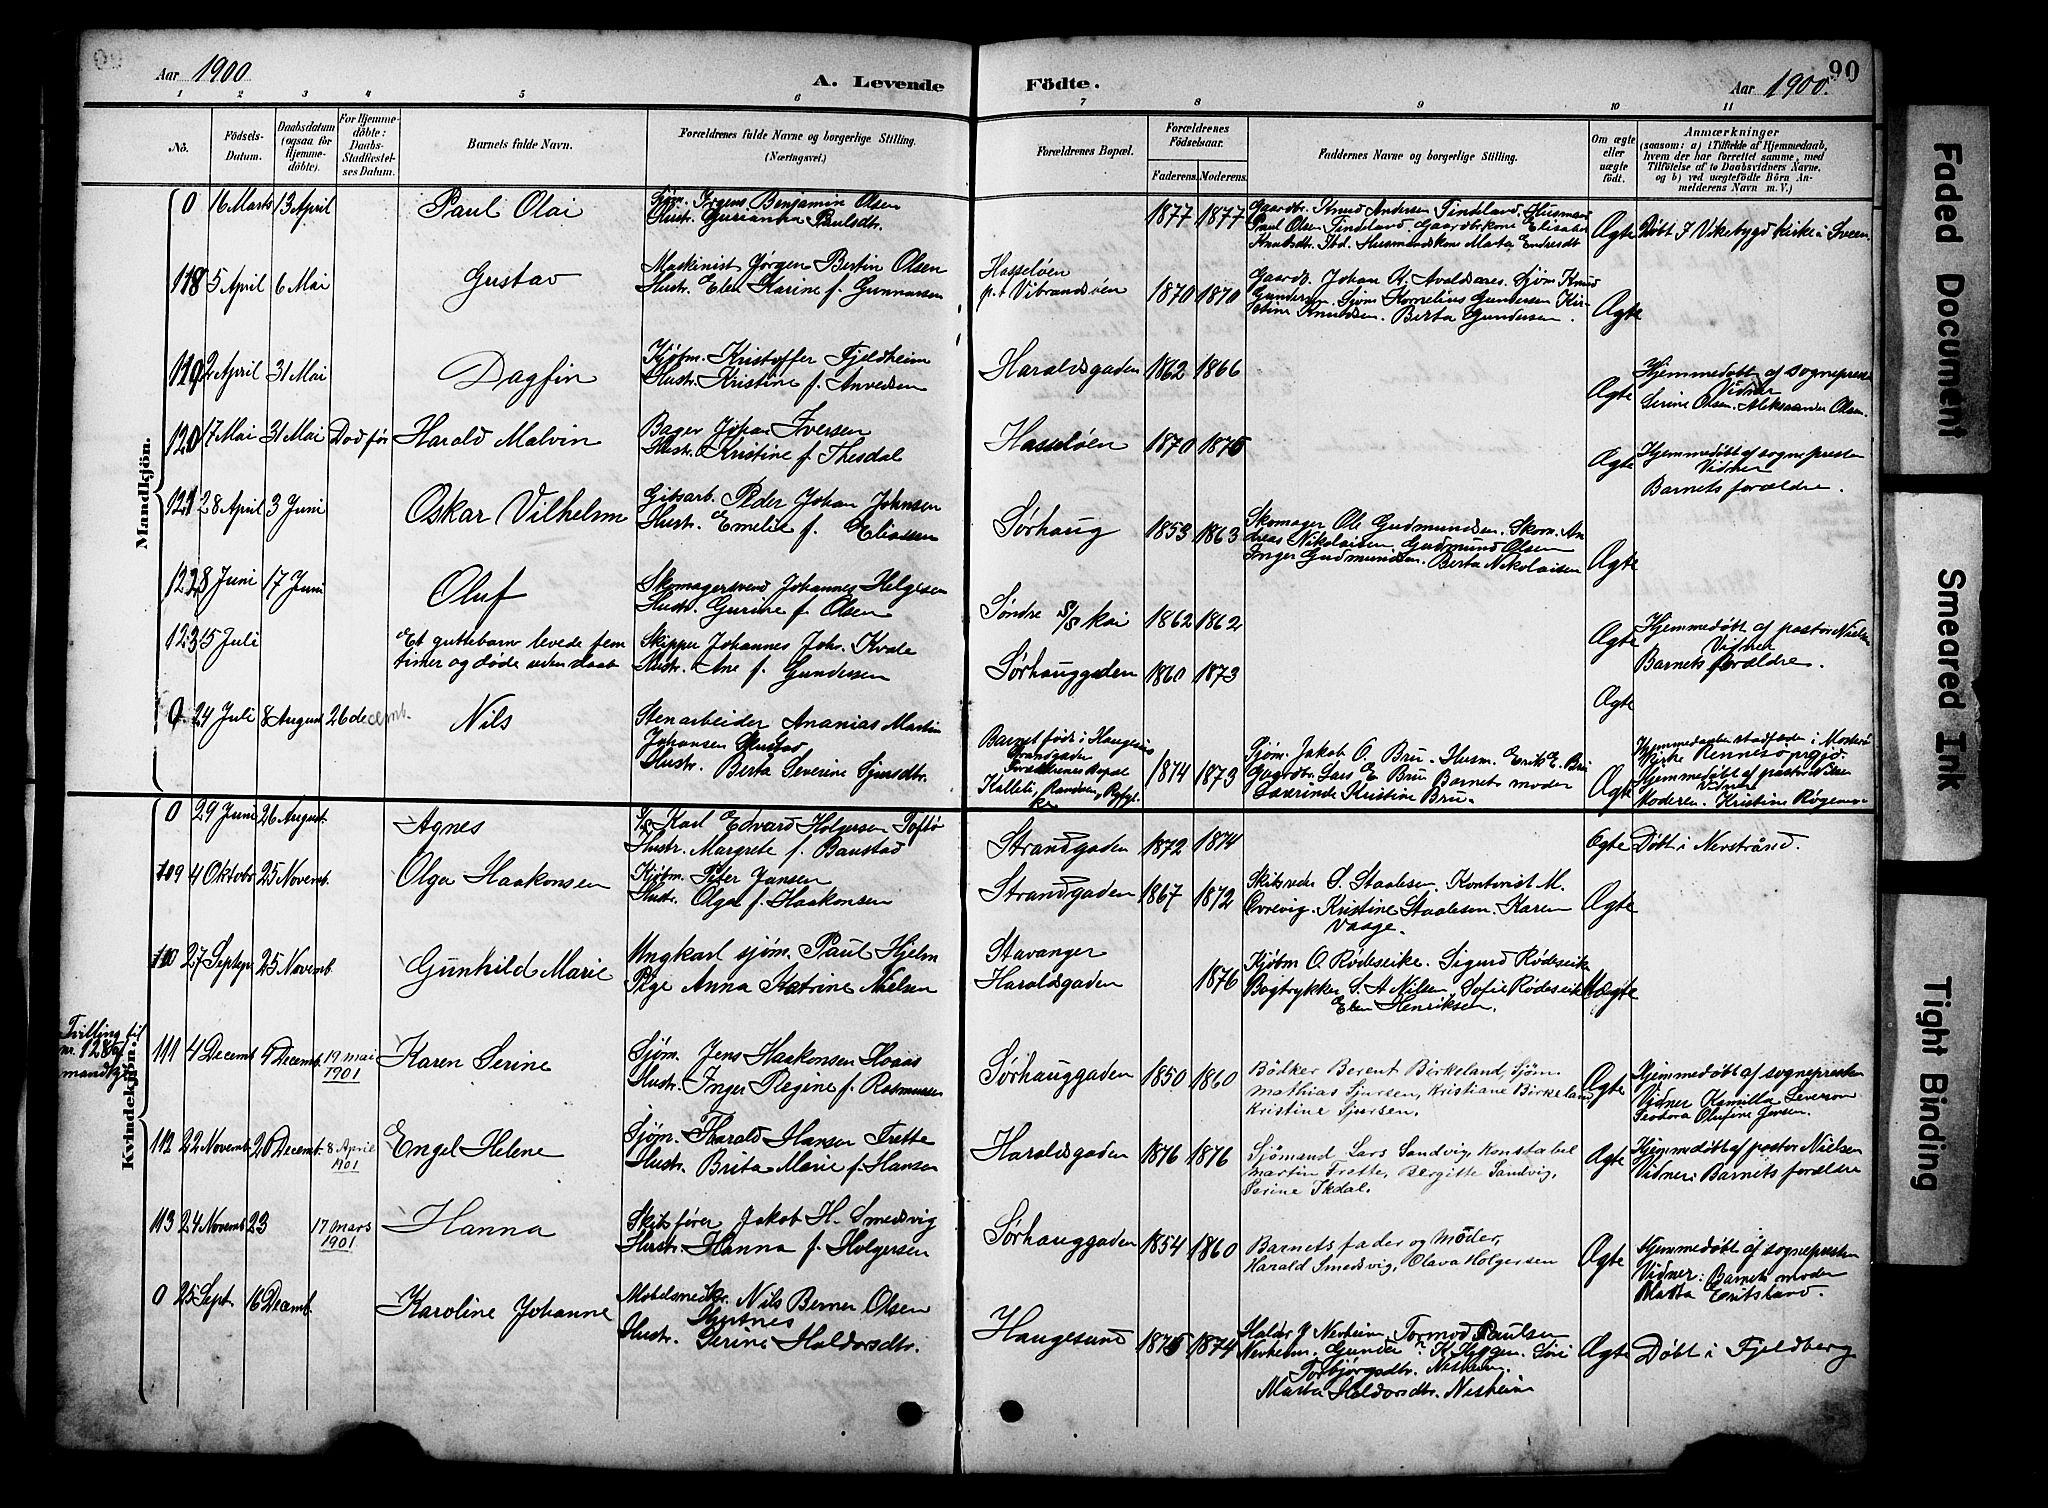 Aar 1900
A. Levende
Födte.
Aar 1900.
90
1 2 3 4 5 6 7 8 9 10 11
No.
Födsels-Datum.
Daabsdatum (ogsaa for Hjemmedöbte).
For Hjemmedöbte: Daabs-Stadfæstelses Datum.
Barnets fulde Navn.
Forældrenes fulde Navne og borgerlige Stilling.
(Næringsvei.)
Forældrenes Bopæl.
Forældrenes Födselsaar.
Faderens. Moderens.
Faddernes Navne og borgerlige Stilling.
Om ægte eller uægte født.
Anmærkninger
(saasom: a) i Tilfælde af Hjemmedaab,
hvem der har forrettet samme, med
Tilføielse af to Daabsvidners Navne,
og b) ved uægtefödte Börn Anmelderens Navn m. V.)
Mandkjön.
0 16 Marts 13 April Paul Olai
Sjøm. Jørgens Benjamin Olsen
Hustr. Gurianna Paulsdtr.
1877 1877
Gaardbr. Knud Andersen Tindeland. Husmand
Paul Olsen Tindeland, Gaardbrkone Elisabet
Knudsdtr. Ibd. Husmandskone Marta Endersdt
Ægte Døbt I Vikebygd kirke i Sveen.
118 5 April 6 Mai Gustav
Maskinist Jørgen Bertin Olsen
Hustr. Elen Karine f. Gunnarsen
Hasseløen
p.t Vibrandsøen
1870 1870
Gaardb. Johan K. Avaldsnes. Sjøm Knud
Gundersen. Sjøm Kornelius Gundersen Kir-
stine Knudsen. Berta Gundersen.
Ægte
119 2 April 31 Mai Dagfin
Kjøbm. Kristoffer Fjeldheim
Hustr. Kristine f. Anvedsen
Haraldsgaden 1862 1866 Ægte
Hjemmedøbt af sogneprester
Vidner
Serine Olsen. Aleksander Olsen.
120 17 Mai 31 Mai Død før Harald Malvin
Bager Johan Iversen
Hustr. Kristine f. Thesdal
Hasseløen 1870 1875 Ægte
Hjemmedøbt af sognepresten
Vidner
Barnets forældre.
121 28 April 3 Juni Oskar Vilhelm
Gibsarb. Peder Johan Johnsen
Hustr. Emelie f. Eliassen
Sørhaug 1853 1863
Skomager Ole Gudmundsen. Skom. An
dreas Nikolaisen Gudmund Olsen
Inger Gudmundsen. Berta Nikolaisen
Ægte
122 8 Juni 17 Juni Oluf
Skomagersvend Johannes Helgesen
Hustr. Gurine f. Olsen
Søndre S/S kai 1862 1862 Ægte
Hjemmedøbt af pastor Nielsen
Vidner
Barnets forældre.
123 15 Juli
Et guttebarn levede fem
timer og døde uden daab
Skipper Johannes Johs. Kvala
Hustr. Ane f. Gundersen
Sørhauggaden 1860 1873 Ægte
0 24 Juli 8 August 26 decemb. Nils
Stenarbeider Ananias Martin
Johansen
Hustr. Berta Severine Sjursdtr.
Barnet født i Haugesund
Strandgaden
Forældrenes Bopæl
1874 1873
Sjøm. Jakob O. Bru. Husm. Erik E. Bru
Gaardbr. Lars E Bru Barnets moder
Kristine Bru.
Ægte
Hjemmedaaben stadfæstet i Mosterø
kirke Rennesø prgjd.
Hjemmedøbt af pastor Nilsen
Vidner
Moderen. Kristine
Kvindekjön.
0 29 Juni 26 August. Agnes
S/S Karl Edvard Holgersen Toftø
Hustr. Margrete f. Baustad
Strandgaden 1872 1874 Ægte Døbt i Nerstrand.
109 4 Oktobr 25 Novemb. Olga Haakonsen
Kjøbm. Peter Jansen
Hustr. Olga f. Haakonsen
Strandgaden 1867 1872
Skibsreder S. Staalesen. Kontorist M.
Øvrevig. Kristine Staalesen. Karen
Vaage.
Ægte
110 27 Septbr 25 Novemb. Gunhild Marie
Ungkarl sjøm. Paul Hjelm
Pige Anna Katrine Nielsen
Stavanger
Haraldsgaden
1876
Kjøbm O. Rødeseike. Sigurd Rødeseike
Bogtrykker S. A Nilsen, Sofie Rødeseike
Elen Henriksen.
Uægte
Tvilling til
nr. 128 af
mandkjøn
111 4 Decemb 4 Decemb. 19 mai 1901 Karen Serine
Sjøm. Jens Haakonsen Hovås
Hustr. Inger Regine f. Rasmussen
Sørhauggaden 1850 1860
Bödker Berent Birkeland, Sjöm.
Mathias Sjursen, Kristiane Birkeland
Kristine Sjursen.
Ægte
Hjemmedøbt af sognepresten
Vidner Kamilla Severson
Teodora Olufine Jensen.
112 22 Novemb. 26 Decemb. 8 April 1901 Engel Helene
Sjøm. Tharald Hansen Frette
Hustr. Brita Marie f. Hansen
Haraldsgaden 1876 1876
Sjömand Lars Sandvig, Konstabel
Martin Frette, Bergitte Sandvig,
Serine Ikdal.
Ægte
Hjemmedøbt af pastor Nielsen
Vidner: Barnets forældre
113 24 Novemb 23 17 mars 1901 Hanna
Skibsfører Jakob H. Smedsvig
Hustr. Hanna f. Holgersen
Sørhauggaden 1854 1860
Barnets fader og moder,
Harald Smedsvig, Olava Holgersen
Ægte
Hjemmedøbt af sognepresten
Vidner: Barnets moder
Marta Eritsland.
0 25 Sept. 16 Decemb. Karoline Johanne
Møbelsnedkr. Nils Berner Olsen
Hustr. Serine Haldorsdtr.
Haugesund 1875 1874
Haldr Nesheim, Tormod Paulsen
Nesheim. Gunda K. Hyggen. Siri
Torbjørgsdtr. Nesheim.
Marta Haldorsdtr. Nesheim
Ægte Døbt i Fjeldberg
Faded Document
Smeared Ink
Tight Binding